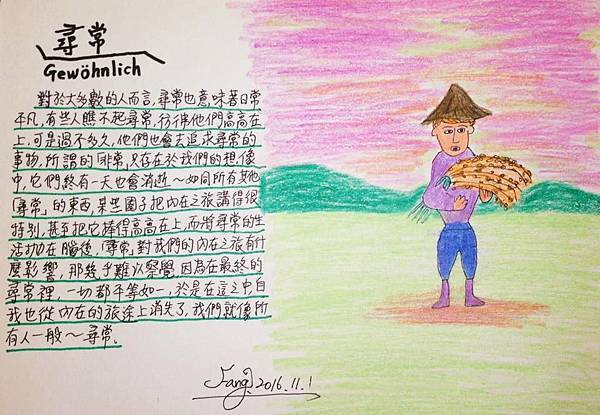 尋常
Gewöhnlich
對於大多數的人而言,尋常也意味著日常
平凡,有些人瞧不起尋常,彷彿他們高高在
上,可是過不多久,他們也會去追求尋常的
事物,所謂的「非常」只存在於我們的想像
中,它們終有一天也會消逝~如同所有其他
「尋常」的東西,某些圈子把內在之旅講得很
特別,甚至把它捧得高高在上,而將尋常的生
活拋在腦後,「尋常」對我們的內在之旅有什
麼影響,那幾乎難以察覺,因為在最終的
尋常裡,一切都平等如一,於是在這之中自
我也從內在的旅途上消失了,我們就像所
有人一般~尋常。
Fang 2016.11.1